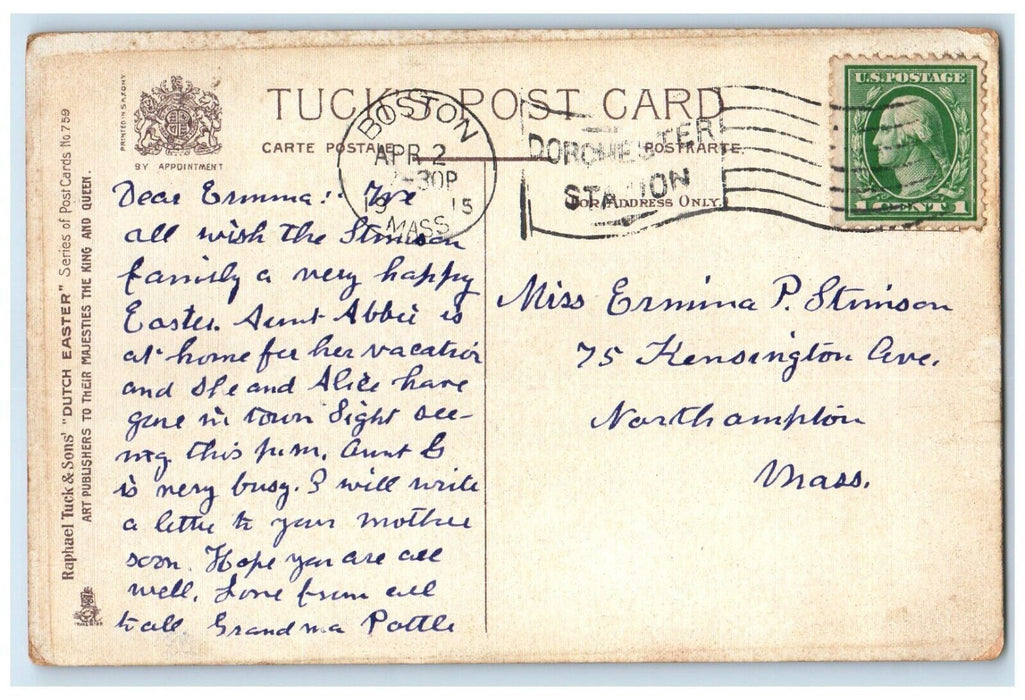 PRINTED IN SAXONY
BY APPOINTMENT
Raphael Tuck & Sons' "DUTCH EASTER" Series of PostCards No. 759
ART PUBLISHERS TO THEIR MAJESTIES THE KING AND QUEEN.
TUCK'S POST CARD
CARTE POSTALE
POSTKARTE.
FOR ADDRESS ONLY.
BOSTON
APR 2
30P
19 15
MASS
DORCHESTER
STATION
U.S. POSTAGE
1 CENT 1
Dear Ermina: We
all wish the Stimson
family a very happy
Easter. Aunt Abbie is
at home for her vacation
and she and Alice have
gone in town sight see-
ing this p.m. Aunt G
is very busy. I will write
a letter to your mother
soon. Hope you are all
well. Love from all
to all Grandma Pottle
Miss Ermina P. Stimson
75 Kensington Ave.
Northampton
Mass.